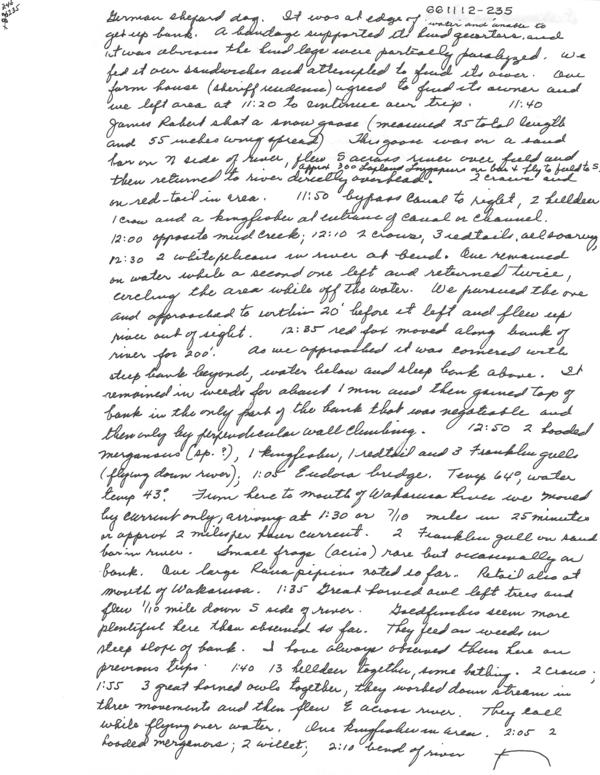 661112-235
German shepard dog. It was at edge of water and unable to
get up bank. A bandage supported its hind quarters, and
it was obvious the hind legs were partially paralyzed. We
fed it our sandwiches and attempted to find its owner. One
farm house (sheriff residence) agreed to find its owner and
we left area at 11:20 to continue our trip. 11:40
James Robert shot a snow goose (measured 25 total length
and 55 inches wing spread) This goose was on a sand
bar on N side of river, flew S across river over field and
then returned to river directly overhead. approx 300 Lapland Longspurs on bar & fly to field to S, 2 crows and
on red-tail in area. 11:50 bypass canal to right, 2 killdeer
1 crow and a kingfisher at entrance of canal or channel.
12:00 opposite mud creek; 12:10 2 crows, 3 redtails, all soaring,
12:30 2 white pelicans in river at bend. One remained
on water while a second one left and returned twice,
circling the area while off the water. We pursued the one
and approached to within 20' before it left and flew up
river out of sight. 12:35 red fox moved along bank of
river for 200'. As we approached it was cornered with
steep bank beyond, water below and steep bank above. It
remained in weeds for about 1 min and then gained top of
bank in the only part of the bank that was negotiable and
then only by perpendicular wall climbing. 12:50 2 hooded
merganous (sp. ?), 1 kingfisher, 1 redtail and 3 Franklin gulls
(flying down river); 1:05 Eudora bridge. Temp 64°, water
temp 43°. From here to mouth of Wakarusa River we moved
by current only, arriving at 1:30 or 7/10 mile in 25 minutes
or approx 2 miles per hour current. 2 Franklin gull on sand
bar in river. Small frogs (acris) rare but occasionally on
bank. One large Rana pipiens noted so far. Retail also at
mouth of Wakarusa. 1:35 Great horned owl left trees and
flew 1/10 mile down S side of river. Goldfinches seem more
plentiful here than observed so far. They feed on weeds on
steep slope of bank. I have always observed them here on
previous trips. 1:40 13 killdeer together, some bathing. 2 crows;
1:55 3 great horned owls together, they worked down stream in
three movements and then flew E across river. They call
while flying over water. One kingfisher in area. 2:05 2
hooded merganers; 2 willet; 2:10 bend of river